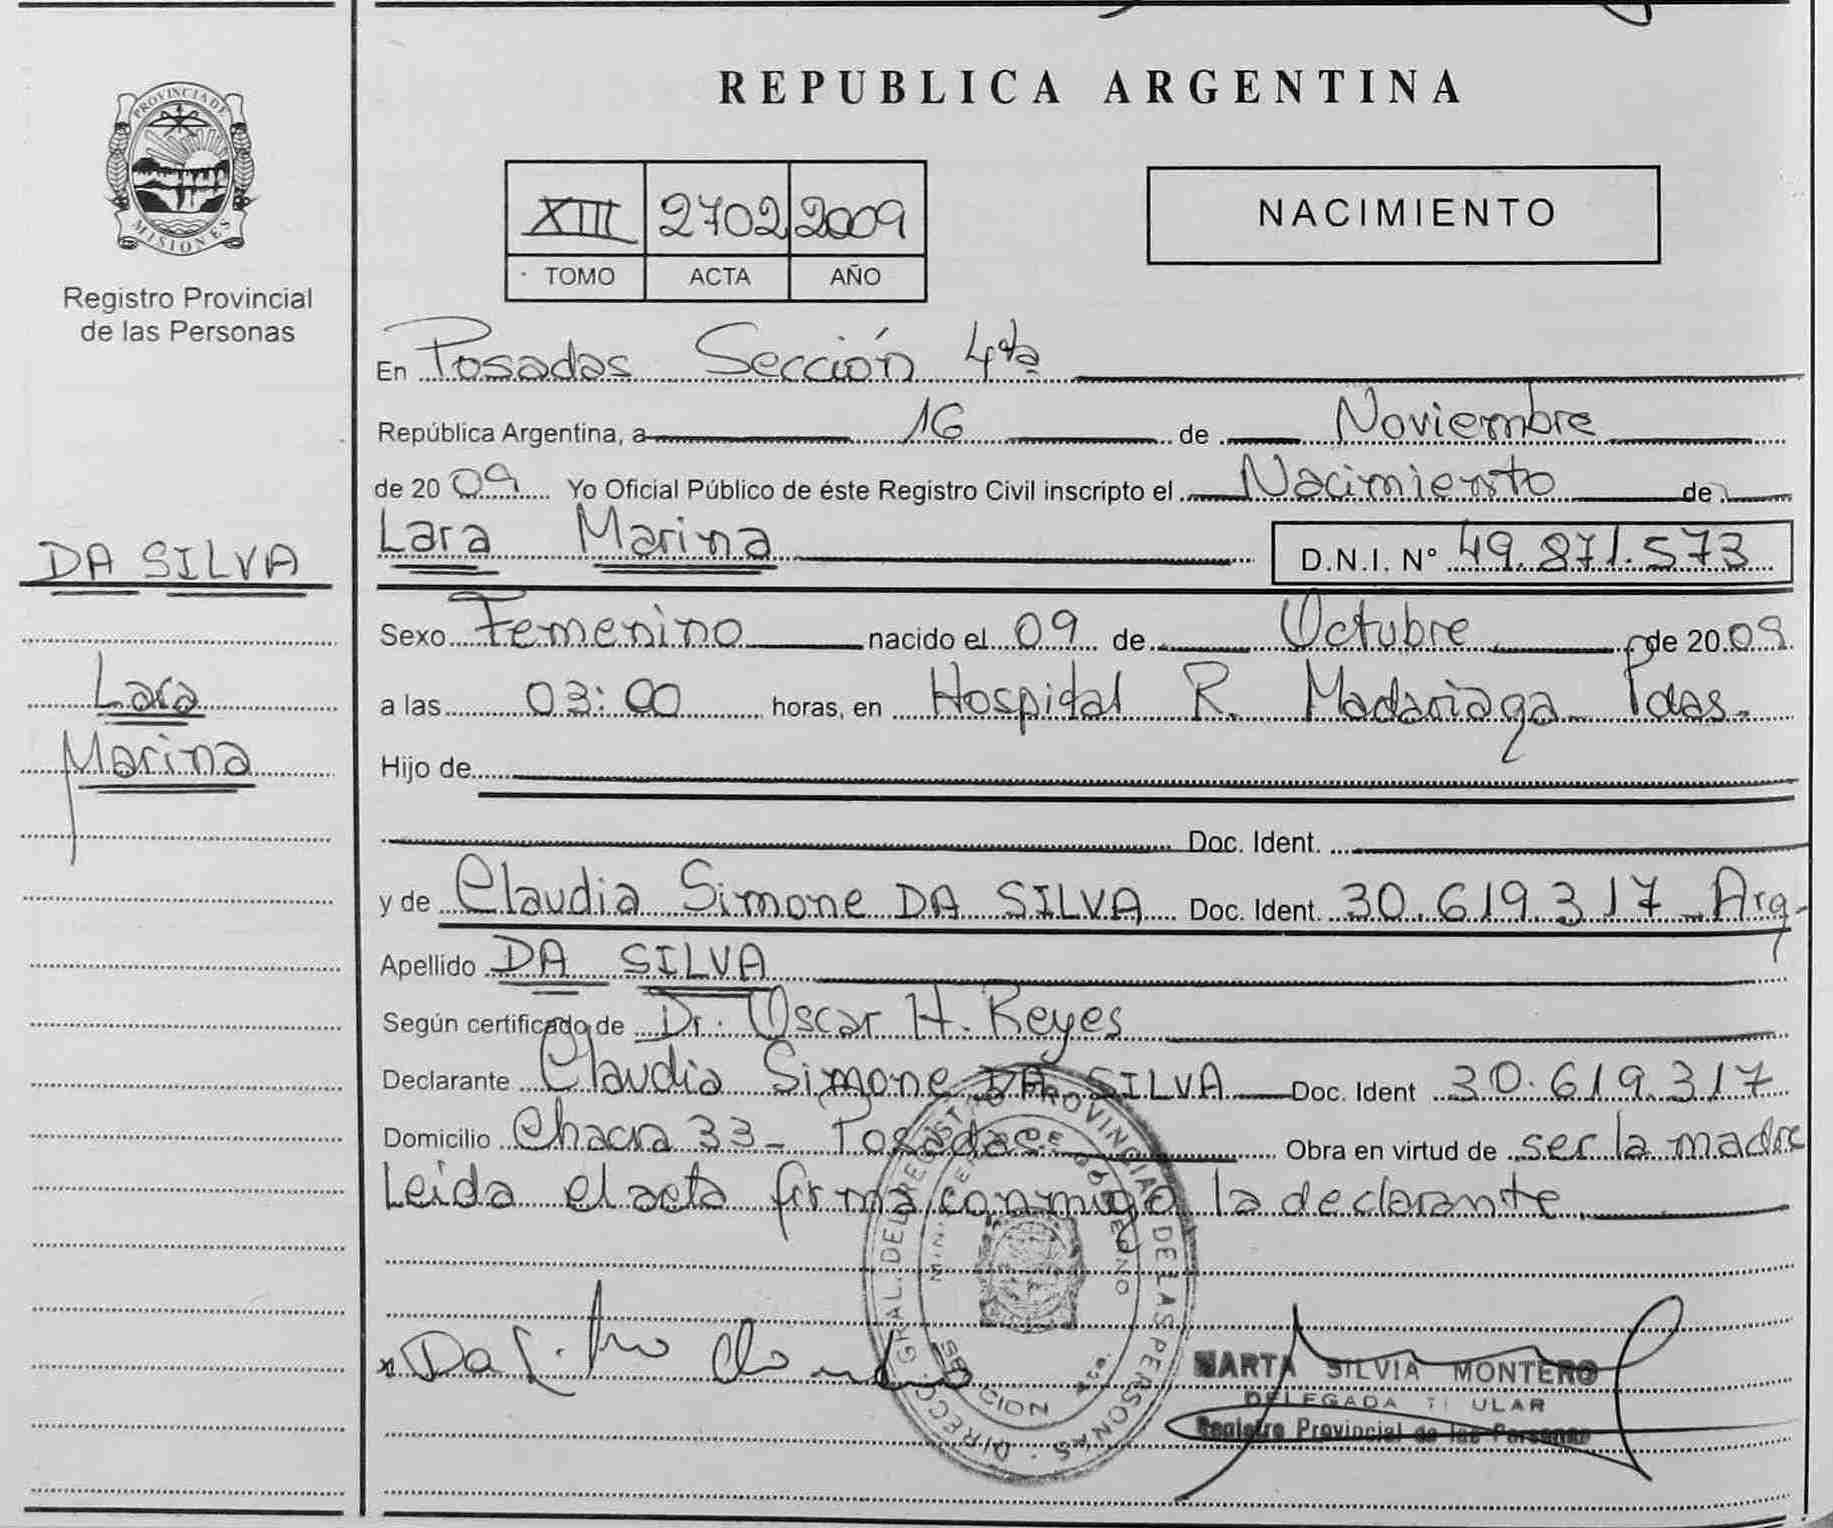 PROVINCIA DE
MISIONES
Registro Provincial
de las Personas
DA SILVA
Lara
Marina
REPUBLICA ARGENTINA
XIII 2702 2009
TOMO ACTA AÑO
NACIMIENTO
En Posadas Sección 4ta
República Argentina, a 16 de Noviembre
de 2009 Yo Oficial Público de éste Registro Civil inscripto el Nacimiento de
Lara Marina D.N.I. N° 49.871.573
Sexo Femenino nacido el 09 de Octubre de 2009
a las 03:00 horas, en Hospital R. Madariaga Pdas.
Hijo de
Doc. Ident.
y de Claudia Simone DA SILVA Doc. Ident. 30.619.317 Arg.
Apellido DA SILVA
Según certificado de Dr. Oscar H. Reyes
Declarante Claudia Simone DA SILVA Doc. Ident 30.619.317
Domicilio Chacra 33 - Posadas Obra en virtud de ser la madre
Leida el acta firma conmigo la declarante.
DIRECC. GRAL. DEL REGISTRO PROVINCIAL DE LAS PERSONAS
DE GOBIERNO
Da Silva Claudia
MARTA SILVIA MONTERO
DELEGADA TITULAR
Registro Provincial de las Personas